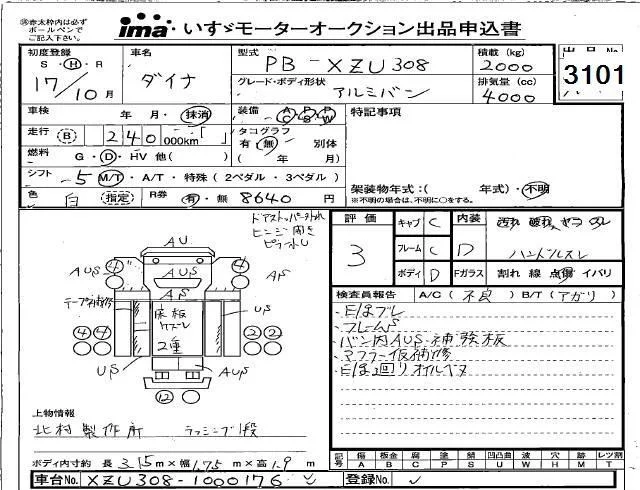 ㊟赤太枠内は必ず
ボールペンで
ご記入下さい。
ima いすゞモーターオークション出品申込書
初度登録 車名 型式 積載 (kg) 出品No
S・H・R ダイナ PB-XZU308 2000 3101
17/10月 グレード・ボディ形状 アルミバン 排気量 (cc) 4000
車検 年・月・抹消 装備 AC PS PW 特記事項
走行 B 240 000km「 」 タコグラフ 有・無 別体
燃料 G・D・HV 他( ) ( 年 月)
シフト 5 M/T・A/T・特殊(2ペダル・3ペダル) 架装物年式:( 年式)・不明
色 白 指定 R券 有・無 8640円 ※不明の場合は、不明に○をする。
ドアストッパー
ヒンジ
評価 3 キャブ C 内装 D 汚れ 破れ ヤコ スレ
フレーム C ハンドルスレ
ボディ D Fガラス 割れ 線 点傷 イバリ
AU
4 AUS 4 AUS AS
AS
テープ補修 床板 US
4 4 2 2
2重
US AUS
12
検査員報告 A/C(不良)B/T(アガリ)
・フレームS
・バン内AUS・補修板
・マフラー仮補修
上物情報
北村製作所
ボディ内寸約 長 3.15m×幅 1.75m×高 1.9m
記号 傷 板金 腐 塗 錆 凹凸曲 波 穴 跡 レツ割
A B C P S U W H M T
車台No. XZU308-1000176 登録No.